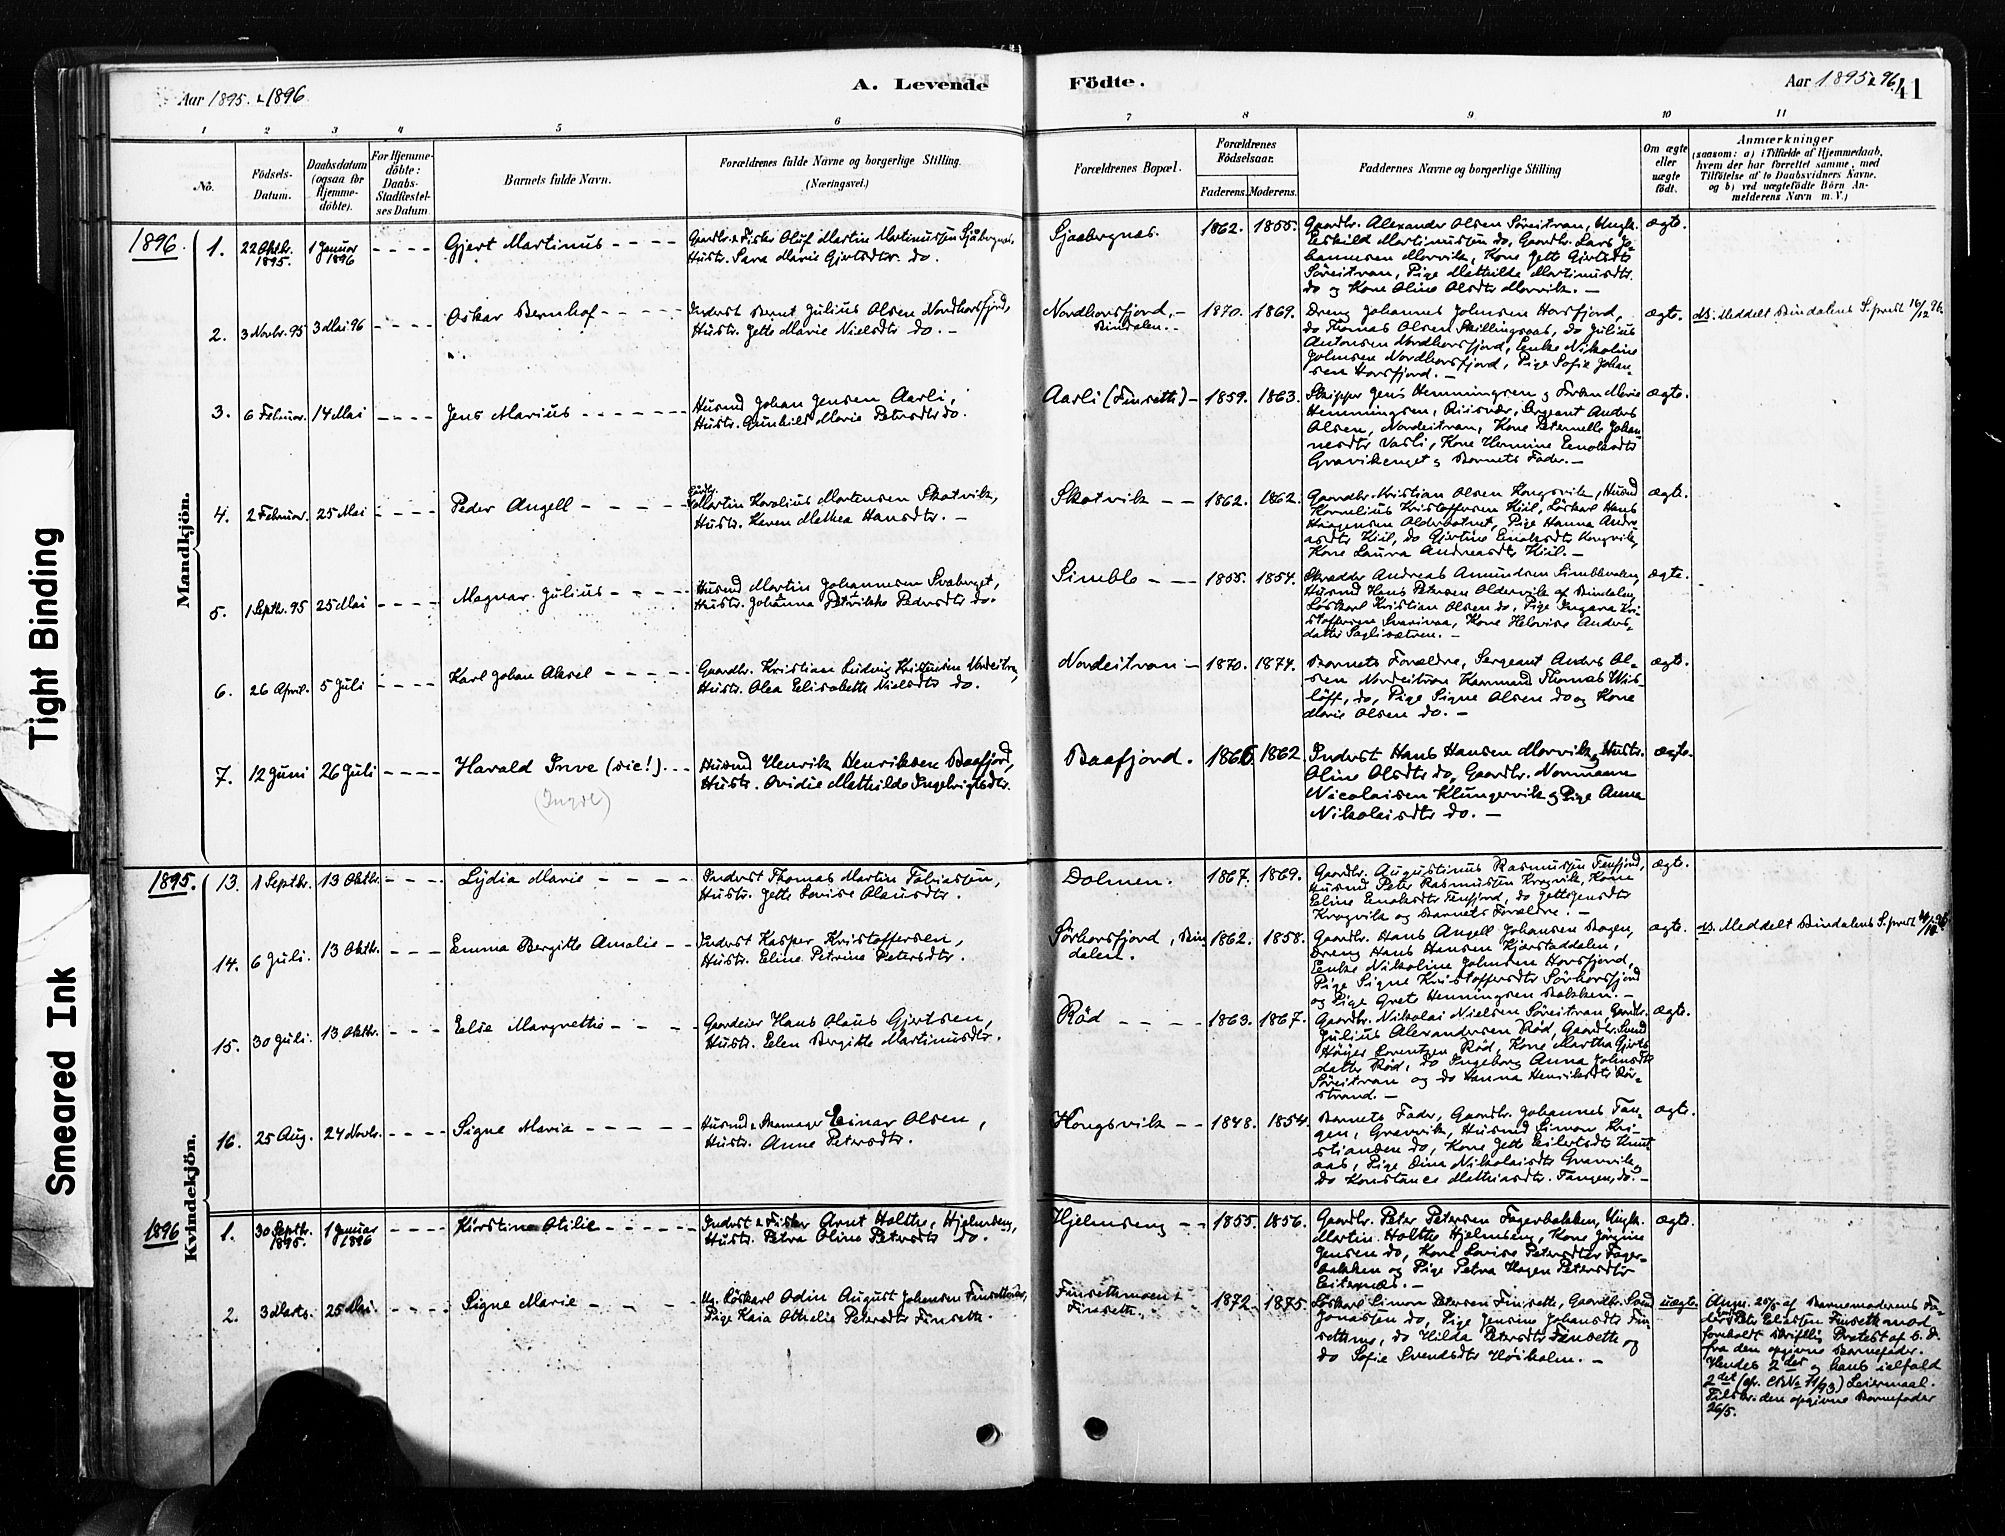 Aar 1895 & 1896
A. Levende
Födte.
Aar 1895 & 96.
41
1 2 3 4 5 6 7 8 9 10 11
No.
Födsels-
Datum.
Daabsdatum
(ogsaa for
Hjemme-
döbte).
For Hjemme-
döbte:
Daabs-
Stadfæstel-
ses Datum
Barnets fulde Navn.
Forældrenes fulde Navne og borgerlige Stilling.
(Næringsvei.)
Forældrenes Bopæl.
Forældrenes
Födselsaar.
Faderens. Moderens.
Faddernes Navne og borgerlige Stilling
Om ægte
eller
uægte
födt.
Anmærkninger
(saasom: a) i Tilfælde af Hjemmedaab,
hvem der har forrettet samme, med
Tilföielse af to Daabsvidners Navne.
og b) ved uægtefödte Börn An-
melderens Navn m. V.)
Mandkjön.
1896.
1. 22 Oktbr. 1895. 1 Januar 1896 - - - - Gjert Martinus - - - -
Gaardbr. & Fisker Oluf Martin Martinussen Sjåbergnæs,
Hustr. Sara Marie Gjertsdtr. do.
Sjaabergnæs. 1862. 1855.
Gaardbr. Alexander Olsen Söreitran, Ungk.
Eskild Martinussen do, Gaardbr. Lars Jo-
hannesen Morvik, Kone Jett Gjertsdtr
Söreitran, Pige Mathilde Martinusdtr.
do og Kone Oline Olsdtr Morvik. -
ægte.
2. 3 Novbr. 95 3 Mai 96 - - - - Oskar Bernhof - - - - -
Inderst Bernt Julius Olsen Nordhorsfjord,
Hustr. Jette Marie Nielsdtr do. -
Nordhorsfjord, -
Bindalen. -
1870. 1869.
Dreng Johannes Johnsen Horsfjord,
do Thomas Olsen Skillingsaas, do Julius
Antonsen Nordhorsfjord, Enke Nikoline
Johnsen Nordhorsfjord, Pige Sofie Johan-
sen Horsfjord. -
ægte. NB. Meddelt Bindalens S.prest 16/12 96.
3. 6 Februar. 14 Mai - - - - Jens Marius - - - - - -
Husmd Johan Jensen Aarli,
Hustr. Gunhild Marie Petersdtr do.
Aarli (Finseth) - 1859. 1863.
Skipper Jens Hemmingsen & Fruken Marie
Hemmingsen, Riisvær, Sergeant Anders
Olsen, Nordeitran, Kone Peternelle Johan-
nesdtr Vasli, Kone Hermine Enoksdtr
Gravikenget & Barnets Fader. -
ægte.
4. 2 Februar. 25 Mai - - - - Peder Angell - - - - -
Martin Karolius Mortensen Skotvik,
Hustr. Karen Mathea Hansdtr. -
Skotvik - - 1862. 1862.
Gaardbr. Kristian Olsen Kongsvik, Husmd
Kornelius Kristoffersen Kiil, Löskarl Hans
Haagensen Oldervatnet, Pige Hanna Andre-
asdtr Kiil, do Gjertine Enoksdtr Kongsvik,
Kone Laura Andreasdtr Kiil. -
ægte.
5. 1 Septbr. 95 25 Mai - - - - Magnar Julius - - - -
Husmd Martin Johannesen Svaberget,
Hustr. Johanna Petrikke Pedersdtr do.
Simble - - - 1855. 1854.
Skrædder Andreas Amundsen Simblevalen,
Husmd Hans Petersen Oldervik af Bindalen,
Löskarl Kristian Olsen do, Pige Ingara Kri-
stoffersen Svarivaa, Kone Helvise Anders-
datter Saglisætren. -
ægte.
6. 26 April. 5 Juli - - - - Karl Johan Aksel - - - -
Gaardbr. Kristian Ludvig Kristensen Nordeitran,
Hustr. Olea Elisabeth Nielsdtr do.
Nordeitran - 1870. 1874.
Barnets Forældre, Sergeant Anders Ol-
sen Nordeitran Kanmand Thomas Wis-
löff, do, Pige Signe Olsen do og Kone
Marie Olsen do. -
ægte.
7. 12 Juni 26 Juli - - - - Harald Inve (sic!) - - -
(Ingve)
Husmd Henrik Henriksen Baafjord,
Hustr. Ovidie Mathilde Ingebrigtsdtr.
Baafjord. 1866 1862
Inderst Hans Hansen Morvik & Hustr.
Oline Olsdtr do, Gaardbr. Normann
Nicolaisen Klungervik & Pige Anna
Nikolaisdtr do. -
ægte.
Kvindekjön.
1895.
13. 1 Septbr. 13 Oktbr. - - - Lydia Marie - - - -
Inderst Thomas Martin Tobiassen,
Hustr. Jette Lovise Olausdtr.
Dolmen. 1867. 1869.
Gaardbr. Augustinus Rasmussen Tenfjord,
Husmd Peter Rasmussen Krogvik, Kone
Eline Enoksdtr Tenfjord, do Jette Jensdtr
Krogvik og Barnets Forældre. -
ægte.
14. 6 Juli. 13 Oktbr. - - - Emma Bergitte Amalie -
Inderst Kasper Kristoffersen,
Hustr. Eline Petrine Petersdtr.
Sörhorsfjord, Bin-
dalen.
1862. 1858.
Gaardbr. Hans Angell Johansen Bogen,
Dreng Hans Hansen Kjærstaddalen,
Enke Nikoline Johnsen Horsfjord,
Pige Signe Kristoffersdtr Sörhorsfjord
og Pige Grete Henningsen Bakken. -
ægte. NB. Meddelt Bindalens S.prest
15. 30 Juli. 13 Oktbr. - - - Else Margrethe - - -
Gaardeier Hans Olaus Gjertsen,
Hustr. Elen Bergitte Martinusdtr.
Röd - - - - 1863. 1867.
Gaardbr. Nikolai Nielsen Söreitran, Gaardbr.
Julius Alexandersen Röd, Gaardbr. Svend
Höyer Lorentzen Röd, Kone Martha Gjerts-
datter Röd, do Ingeborg Anna Johnsdtr
Söreitran og do Hanna Henriksdtr Rör-
strand. -
ægte.
16. 25 Aug. 24 Novbr. - - - - Signe Maria - - - -
Husmd & Skomager Einar Olsen,
Hustr. Anne Petersdtr.
Kongsvik - - 1848. 1854.
Barnets Fader, Gaardbr. Johannes Tan-
gen, Gravvik, Husmd Simon Kri-
stiansen do, Kone Jette Eilertsdtr
aas, Pige Dina Nikolaisdtr Gravvik,
do Konstance Mathiasdtr. Tangen, do. -
ægte.
1896
1. 30 Septbr. 1895. 1 Januar 1896 - - - - Kirstine Otilie - - - -
Inderst & Fisker Arnt Holthe, Hjelmseng,
Hustr. Petra Oline Petersdtr do.
Hjelmseng - - 1855. 1856.
Gaardbr. Peter Petersen Fagerbakken, Ungk.
Martin Holthe Hjelmseng, Kone Jörgine
Jensen do, Kone Lovise Petersdtr Fager-
bakken og Pige Petra Hagen Petersdtr
Leiternæs. -
ægte.
2. 3 Marts. 25 Mai - - - - Signe Marie - - - -
Ug. Löskarl Odin August Johansen Finsethmoen,
Pige Kaia Othelie Petersdtr Finseth.
Finsethmoen &
Finseth.
1872. 1875.
Löskarl Simon Petersen Finseth, Gaardbr. Svend
Jonassen do, Pige Jensine Johansdtr Fin-
sethmo, do Hilda Petersdtr Finseth og
do Sofie Svendsdtr Höiholm. -
uægte.
Angm. 25/5 af Barnemoderens Fa-
der Peter Eliassen Finseth mod
foreholdt skriftlig Protest af s. d.
fra den opgivne Barnefader.
Hendes 2det og hans ialfald
2det (cfr. No 71/93) Leiermaal.
Tilskr. den opgivne Barnefader
26/5.
Tight Binding
Smeared Ink